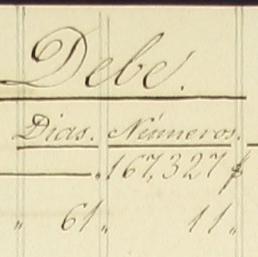 Debé.
Dias. Números.
„ 167,327 f
„ 61 „ 11 „